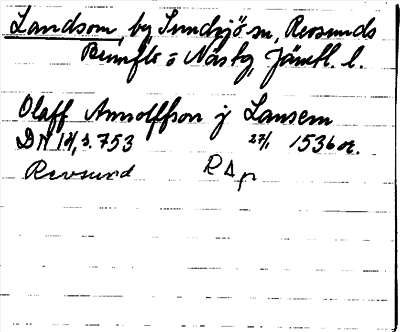 Landsom, by Sundsjö sn, Revsunds
Brunflo o Näs tg, Jämtl. l.
Olaff Arnolffson j Lansem
DN 14, s. 753 27/1 1536 or.
Revsund RAp